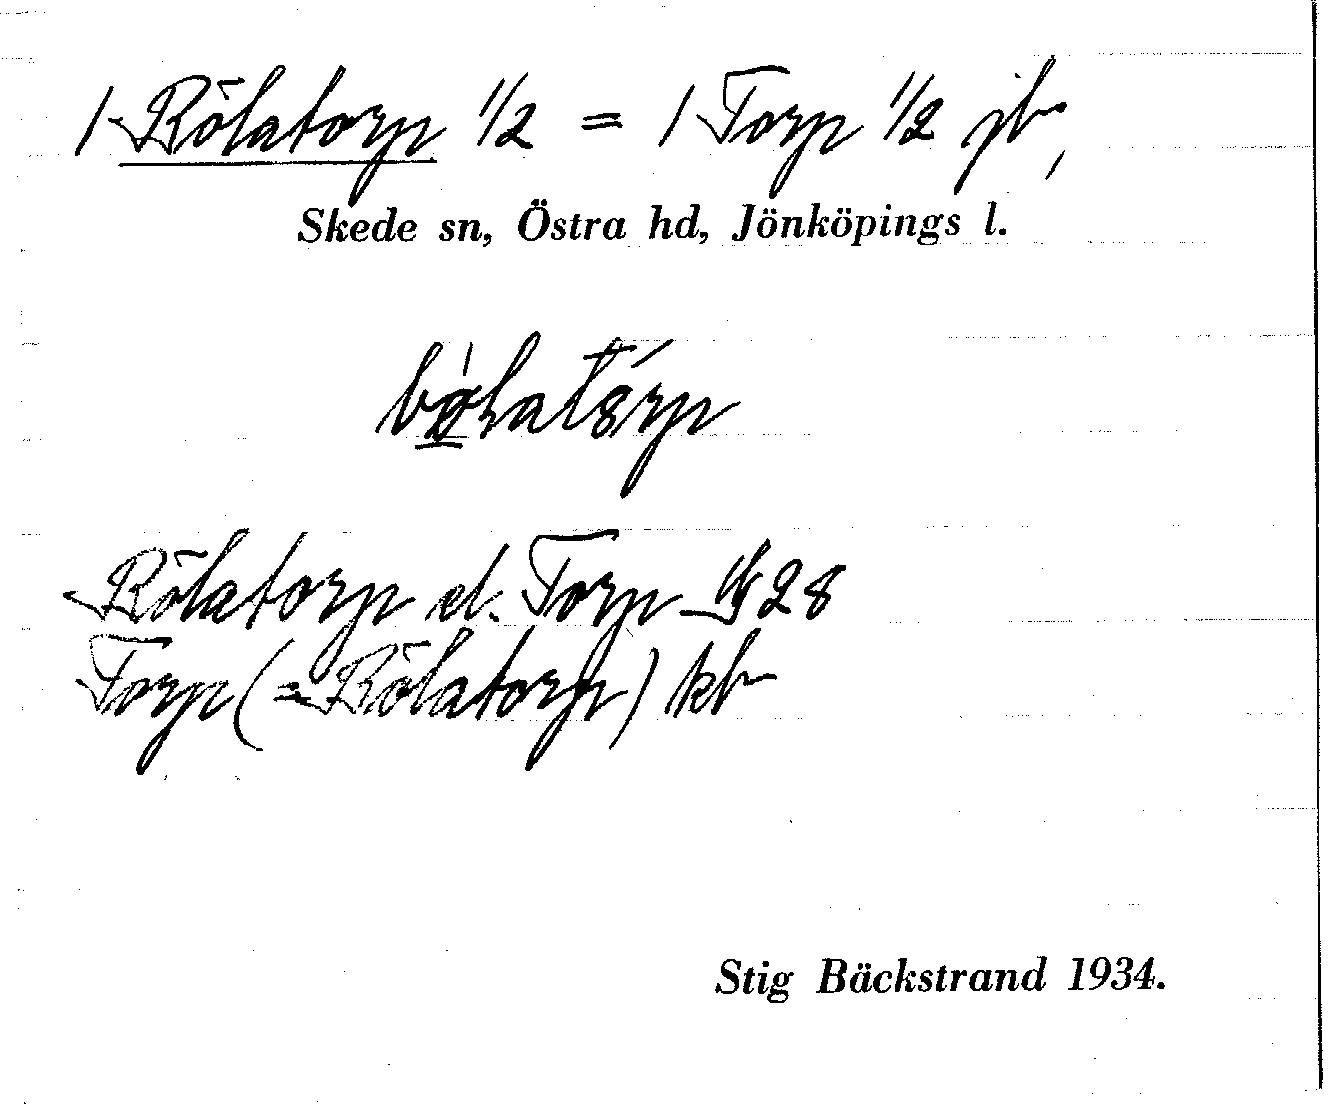 1 Bölatorp 1/2 = 1 Torp 1/2 jb,
Skede sn, Östra hd, Jönköpings l.
Bölatorp el. Torp 28
Torp (= Bölatorp) kb
Stig Bäckstrand 1934.